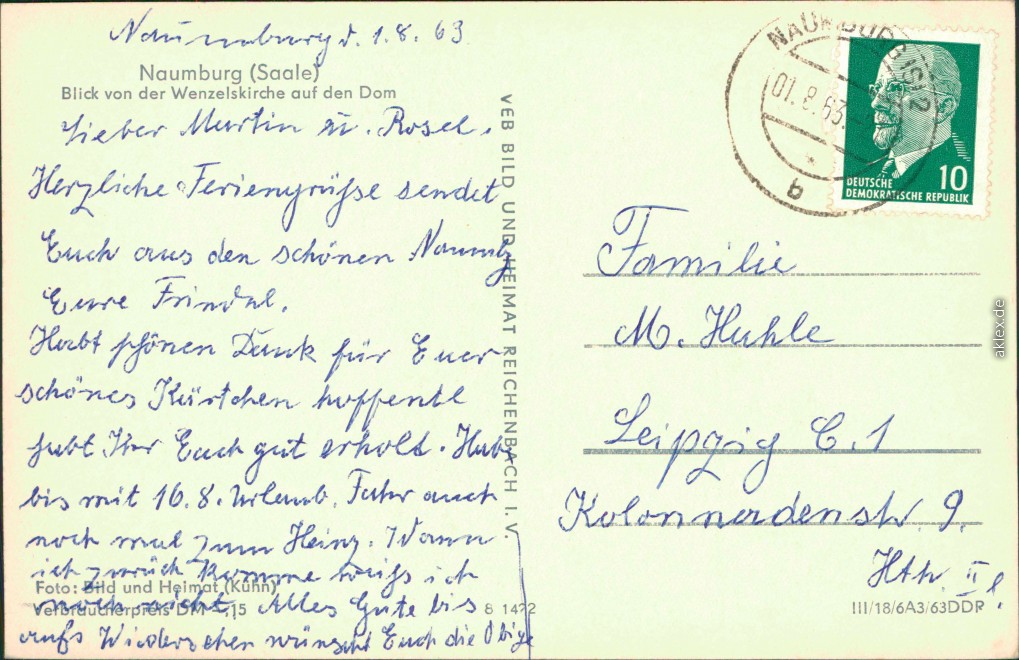 Naumburg d. 1.8.63
Naumburg (Saale)
Blick von der Wenzelskirche auf den Dom
Lieber Martin u. Rosel.
Herzliche Feriengrüße sendet
Euch aus den schönen Naumbg
Eure
Habt schönen Dank für Euer
schönes Kärtchen hoffentl
habt Ihr Euch gut erholt. Habe
bis mit 16.8. Urlaub. Fahr auch
noch mal zum Heinz. Wann
ich zurück komme weiß ich
noch nicht. Alles Gute bis
aufs Wiedersehen wünscht Euch die Obige
Foto: Bild und Heimat (Kühn)
Verbraucherpreis DM -,15
8 1472
VEB BILD UND HEIMAT REICHENBACH I. V.
NAUMBURG (S) 2
01. 8. 63.
b
DEUTSCHE
DEMOKRATISCHE REPUBLIK
10
Familie
M. Huhle
Leipzig C.1
Kolonnadenstr. 9.
Hth. II l.
III/18/6A3/63DDR
aklex.de